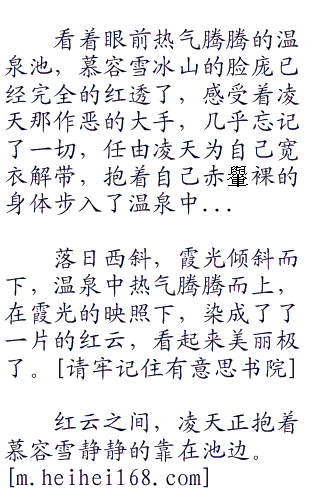 看着眼前热气腾腾的温
泉池，慕容雪冰山的脸庞已
经完全的红透了，感受着凌
天那作恶的大手，几乎忘记
了一切，任由凌天为自己宽
衣解带，抱着自己赤裸的
身体步入了温泉中...
落日西斜，霞光倾斜而
下，温泉中热气腾腾而上，
在霞光的映照下，染成了了
一片的红云，看起来美丽极
了。[请牢记住有意思书院]
红云之间，凌天正抱着
慕容雪静静的靠在池边。
[m.heihei168.com]